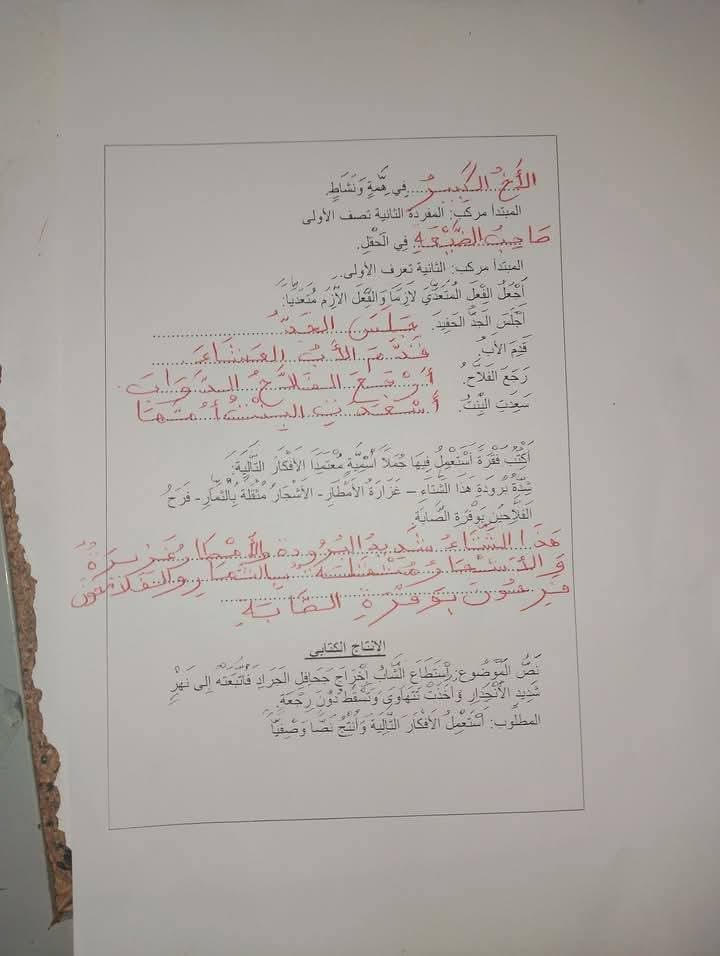 الأَخُ الكَبِيرُ فِي هِمَّةٍ وَنَشَاطٍ.
المبتدأ مركب: المفردة الثانية تصف الأولى
صَاحِبُ الضَّيْعَةِ فِي الْحَقْلِ.
المبتدأ مركب: الثانية تعرف الأولى..
أَجْعَلُ الفِعْلَ الْمُتَعَدِّيَ لَازِمًا وَالفِعْلَ الَّلازِمَ مُتَعَدِّيًا:
أَجْلَسَ الجَدُّ الحَفِيدَ. جَلَسَ الجَدُّ
قَدِمَ الأَبُ. قَدَّمَ الأَبُ العَشَاءَ
رَجَعَ الفَلاَّحُ. أَرْجَعَ الفَلاَّحُ الدَّوَابَ
سَعِدَتِ الْبِنْتُ. أَسْعَدَتِ البِنْتُ أُمَّهَا
أَكْتُبُ فَقْرَةً أَسْتَعْمِلُ فِيهَا جُمَلاً اُسْمِيَّةً مُعْتَمِدًا الأَفْكَارَ التَّالِيَةَ:
شِدَّةُ بُرُودَةِ هَذَا الشِّتَاءِ – غَزَارَةُ الأَمْطَارِ- الأَشْجَارُ مُثْقَلَةٌ بِالثِّمَارِ- فَرَحُ
الفَلاَّحِينَ بِوَفْرَةِ الصَّابَةِ
هَذَا الشِّتَاءُ شَدِيدُ البُرُودَةِ والأَمْطَارُ غَزِيرَةٌ
وَالأَشْجَارُ مُثْقَلَةٌ بِالثِّمَارِ وَالفَلاَّحُونَ
فَرِحُونَ بِوَفْرَةِ الصَّابَةِ
الانتاج الكتابي
نَصُّ الْمَوْضُوعِ: اِسْتَطَاعَ الشَّابُ إِخْرَاجَ جَحَافِلِ الجَرَادِ فَاتَّبَعَتْهُ إِلَى نَهْرٍ
شَدِيدِ الاِنْحِدَارِ وَأَخَذَتْ تَتَهَاوَى وَتَسْقُطُ دُونَ رَجْعَةٍ.
المطلُوب: أَسْتَعْمِلُ الأَفْكَارَ التَّالِيَةَ وَأُنْتِجُ نَصًّا وَصْفِيًّا